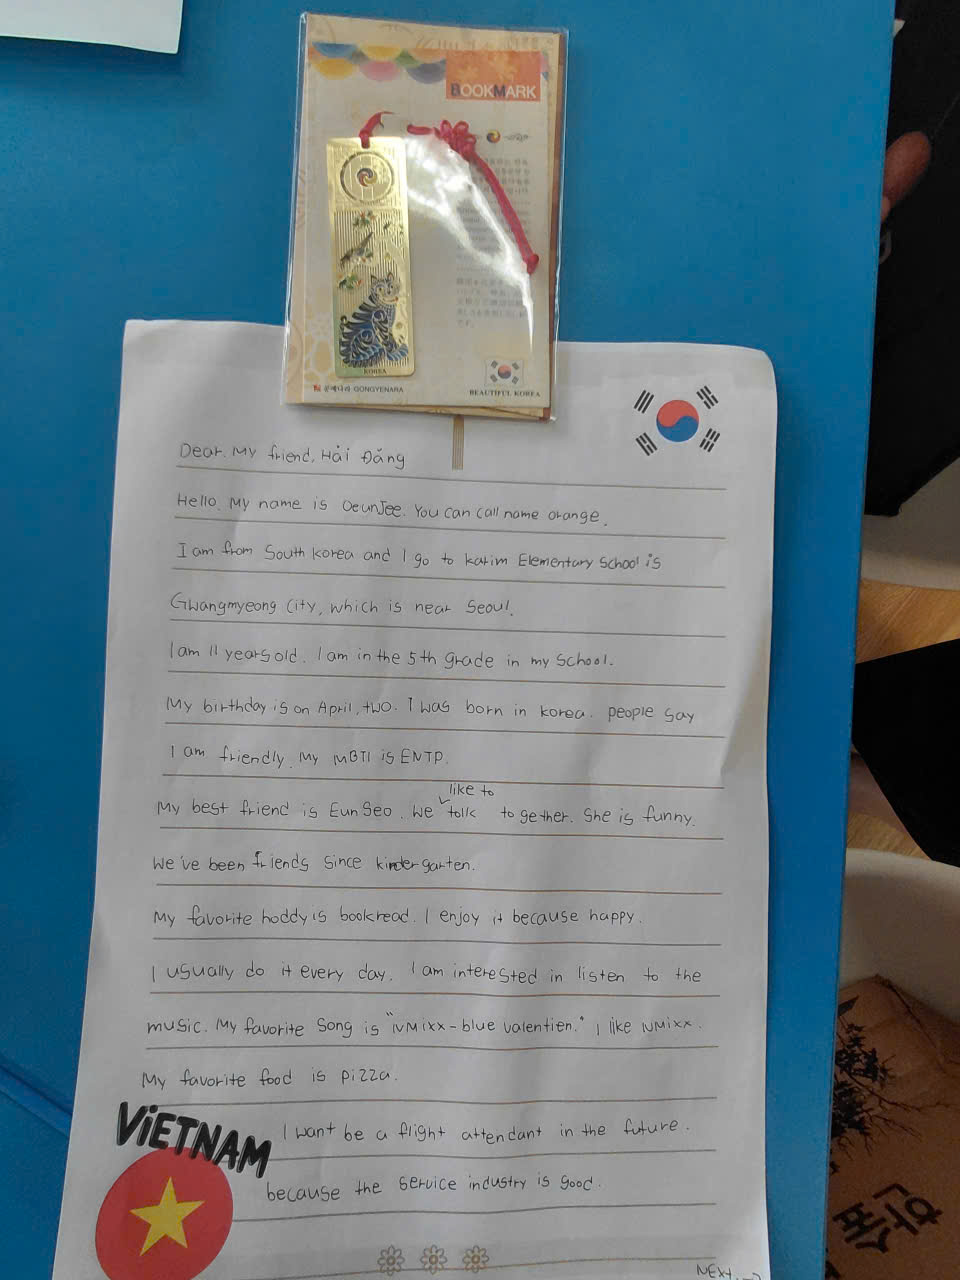 BOOKMARK
KOREA
GONGYENARA
BEAUTIFUL KOREA
Dear. My friend, Hải Đăng
Hello. My name is OeunJee. You can call name orange.
I am from South Korea and I go to karim Elementary School is
Gwangmyeong City, which is near Seoul.
I am 11 years old. I am in the 5th grade in my school.
My birthday is on April, two. I was born in korea. people say
I am friendly. My MBTI is ENTP.
like to
My best friend is EunSeo. We tolk together. She is funny.
We've been friends since kindergarten.
My favorite hoddy is bookread. I enjoy it because happy.
I usually do it every day. I am interested in listen to the
music. My favorite Song is "NMixx-blue valentien." I like NMixx.
My favorite food is pizza.
VIETNAM
I want be a flight attendant in the future.
because the service industry is good.
NEXT